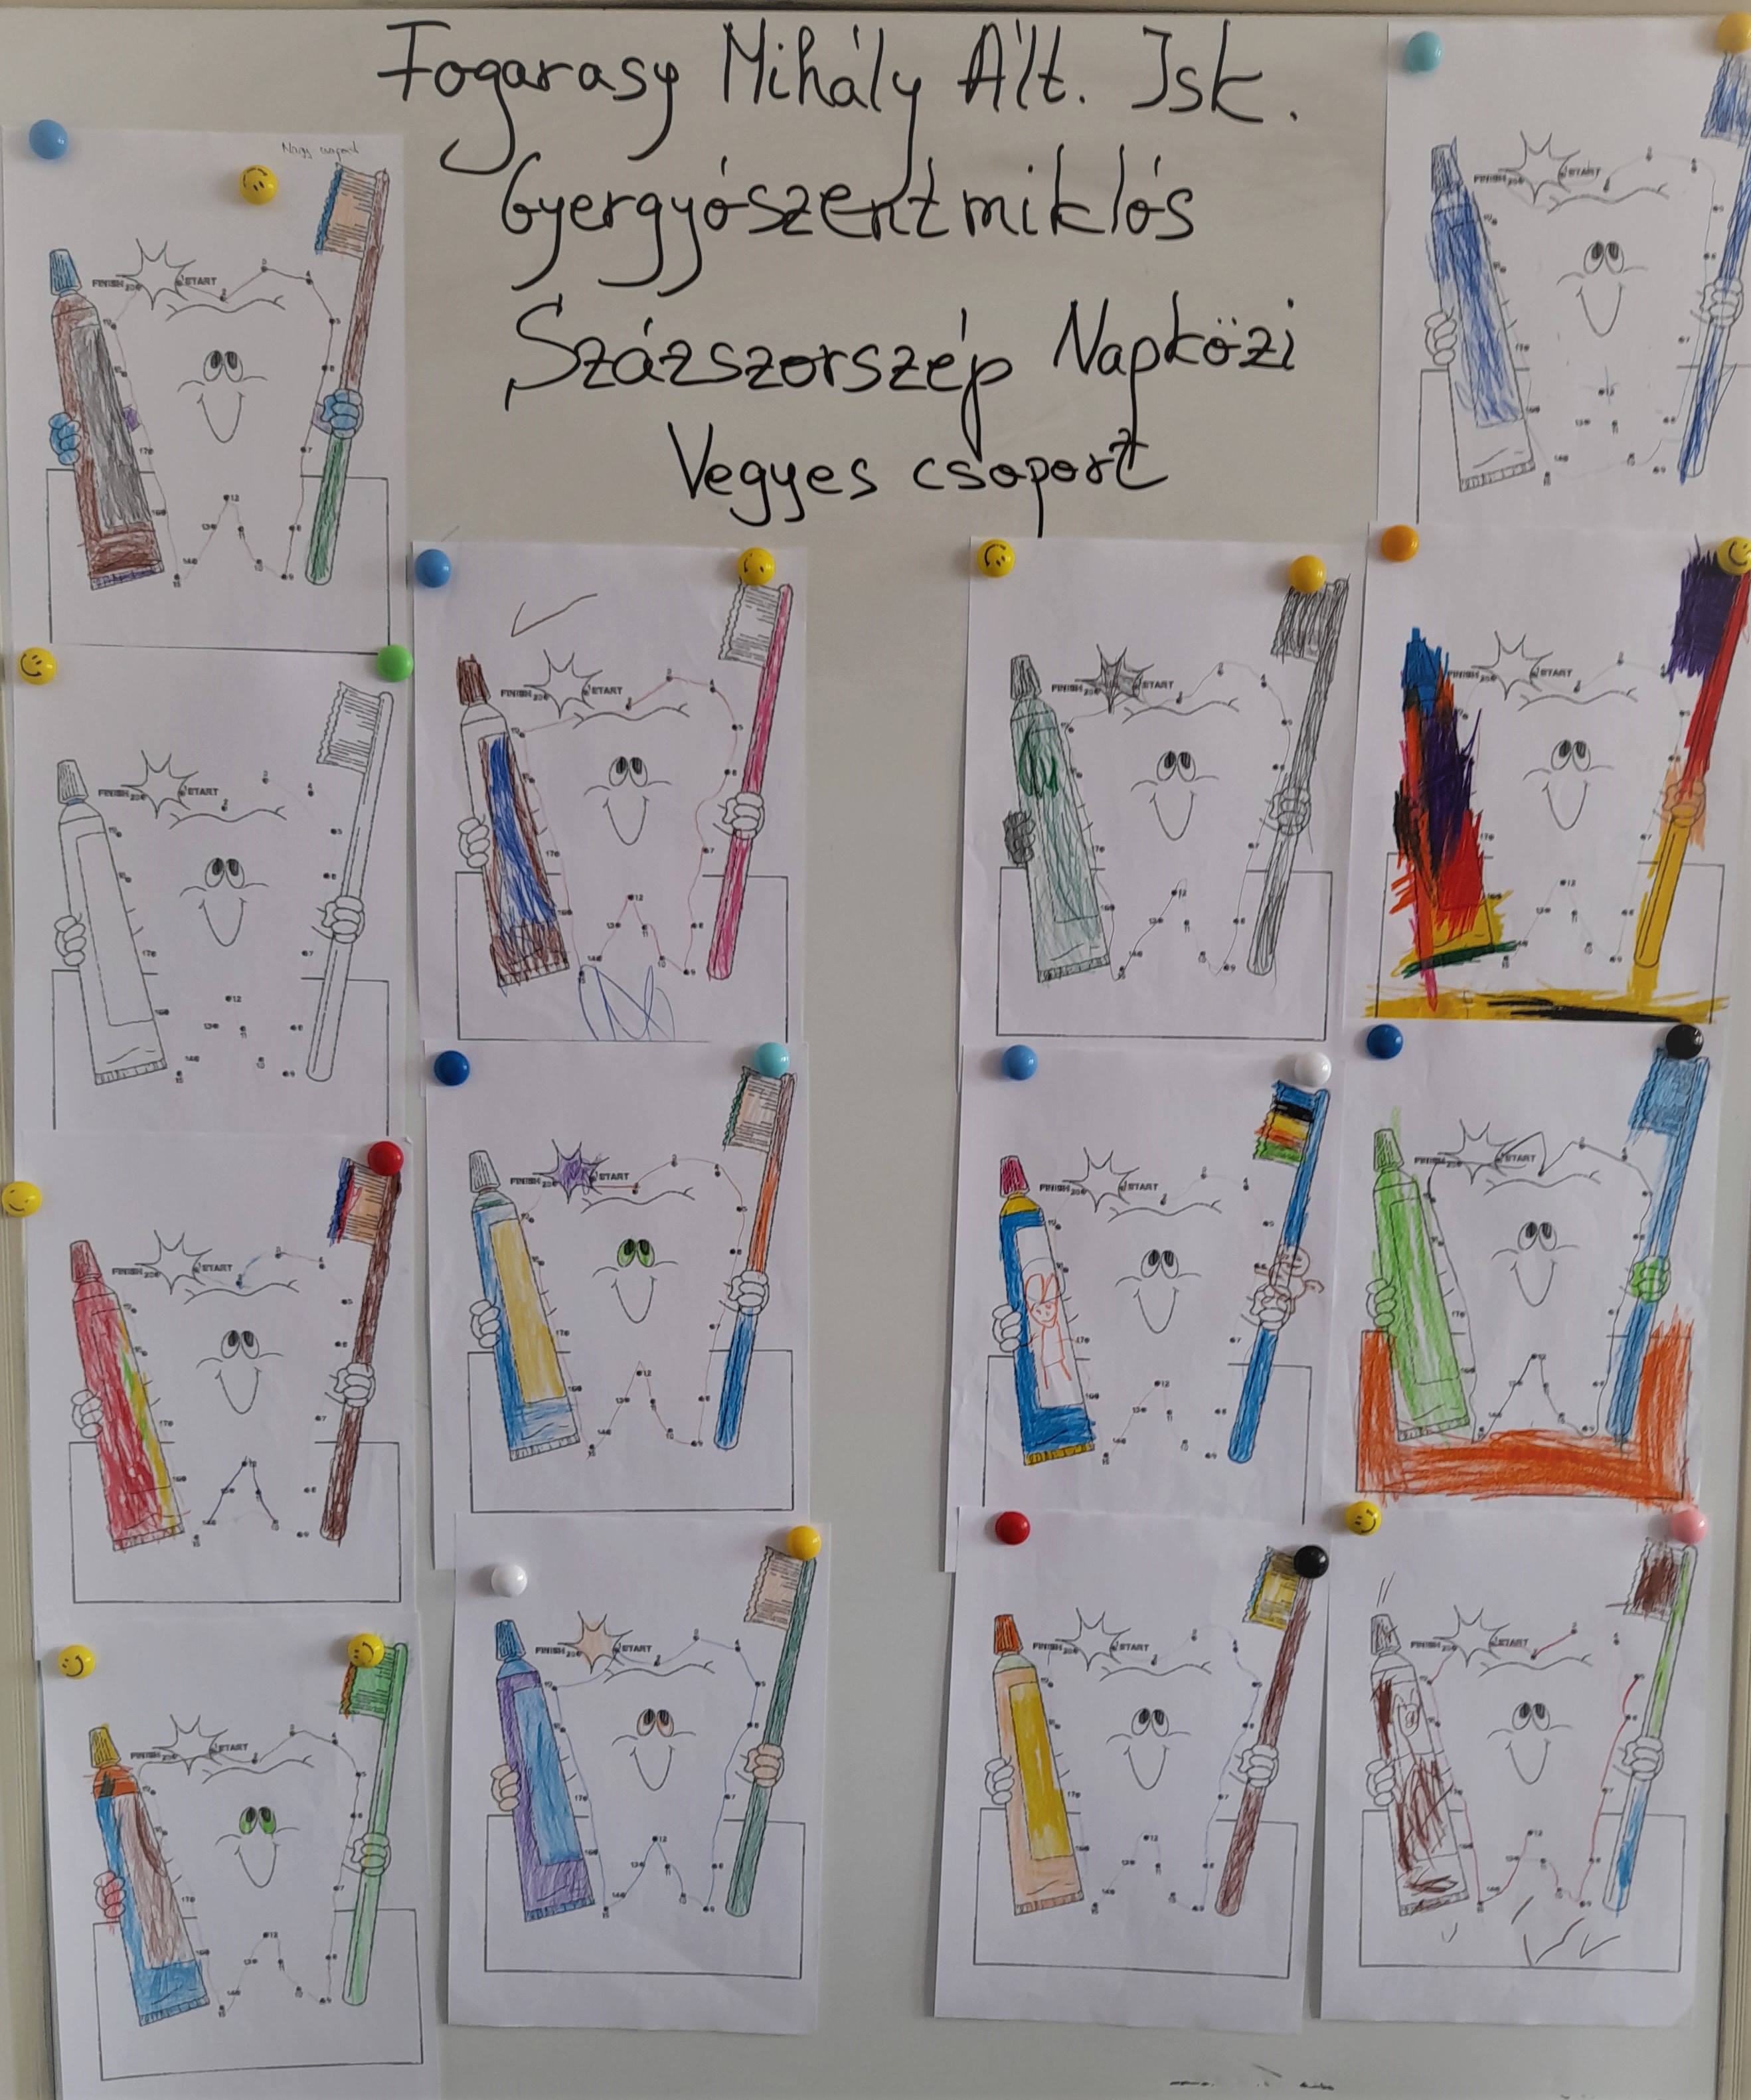 Fogarasy Mihály Ált. Isk.
Gyergyószentmiklós
Százszorszép Napközi
Vegyes csoport
Nagy csoport
FINISH START
FINISH START
FINISH START
FINISH START
FINISH START
FINISH START
FINISH START
FINISH START
FINISH START
FINISH START
FINISH START
FINISH START
FINISH START
FINISH START